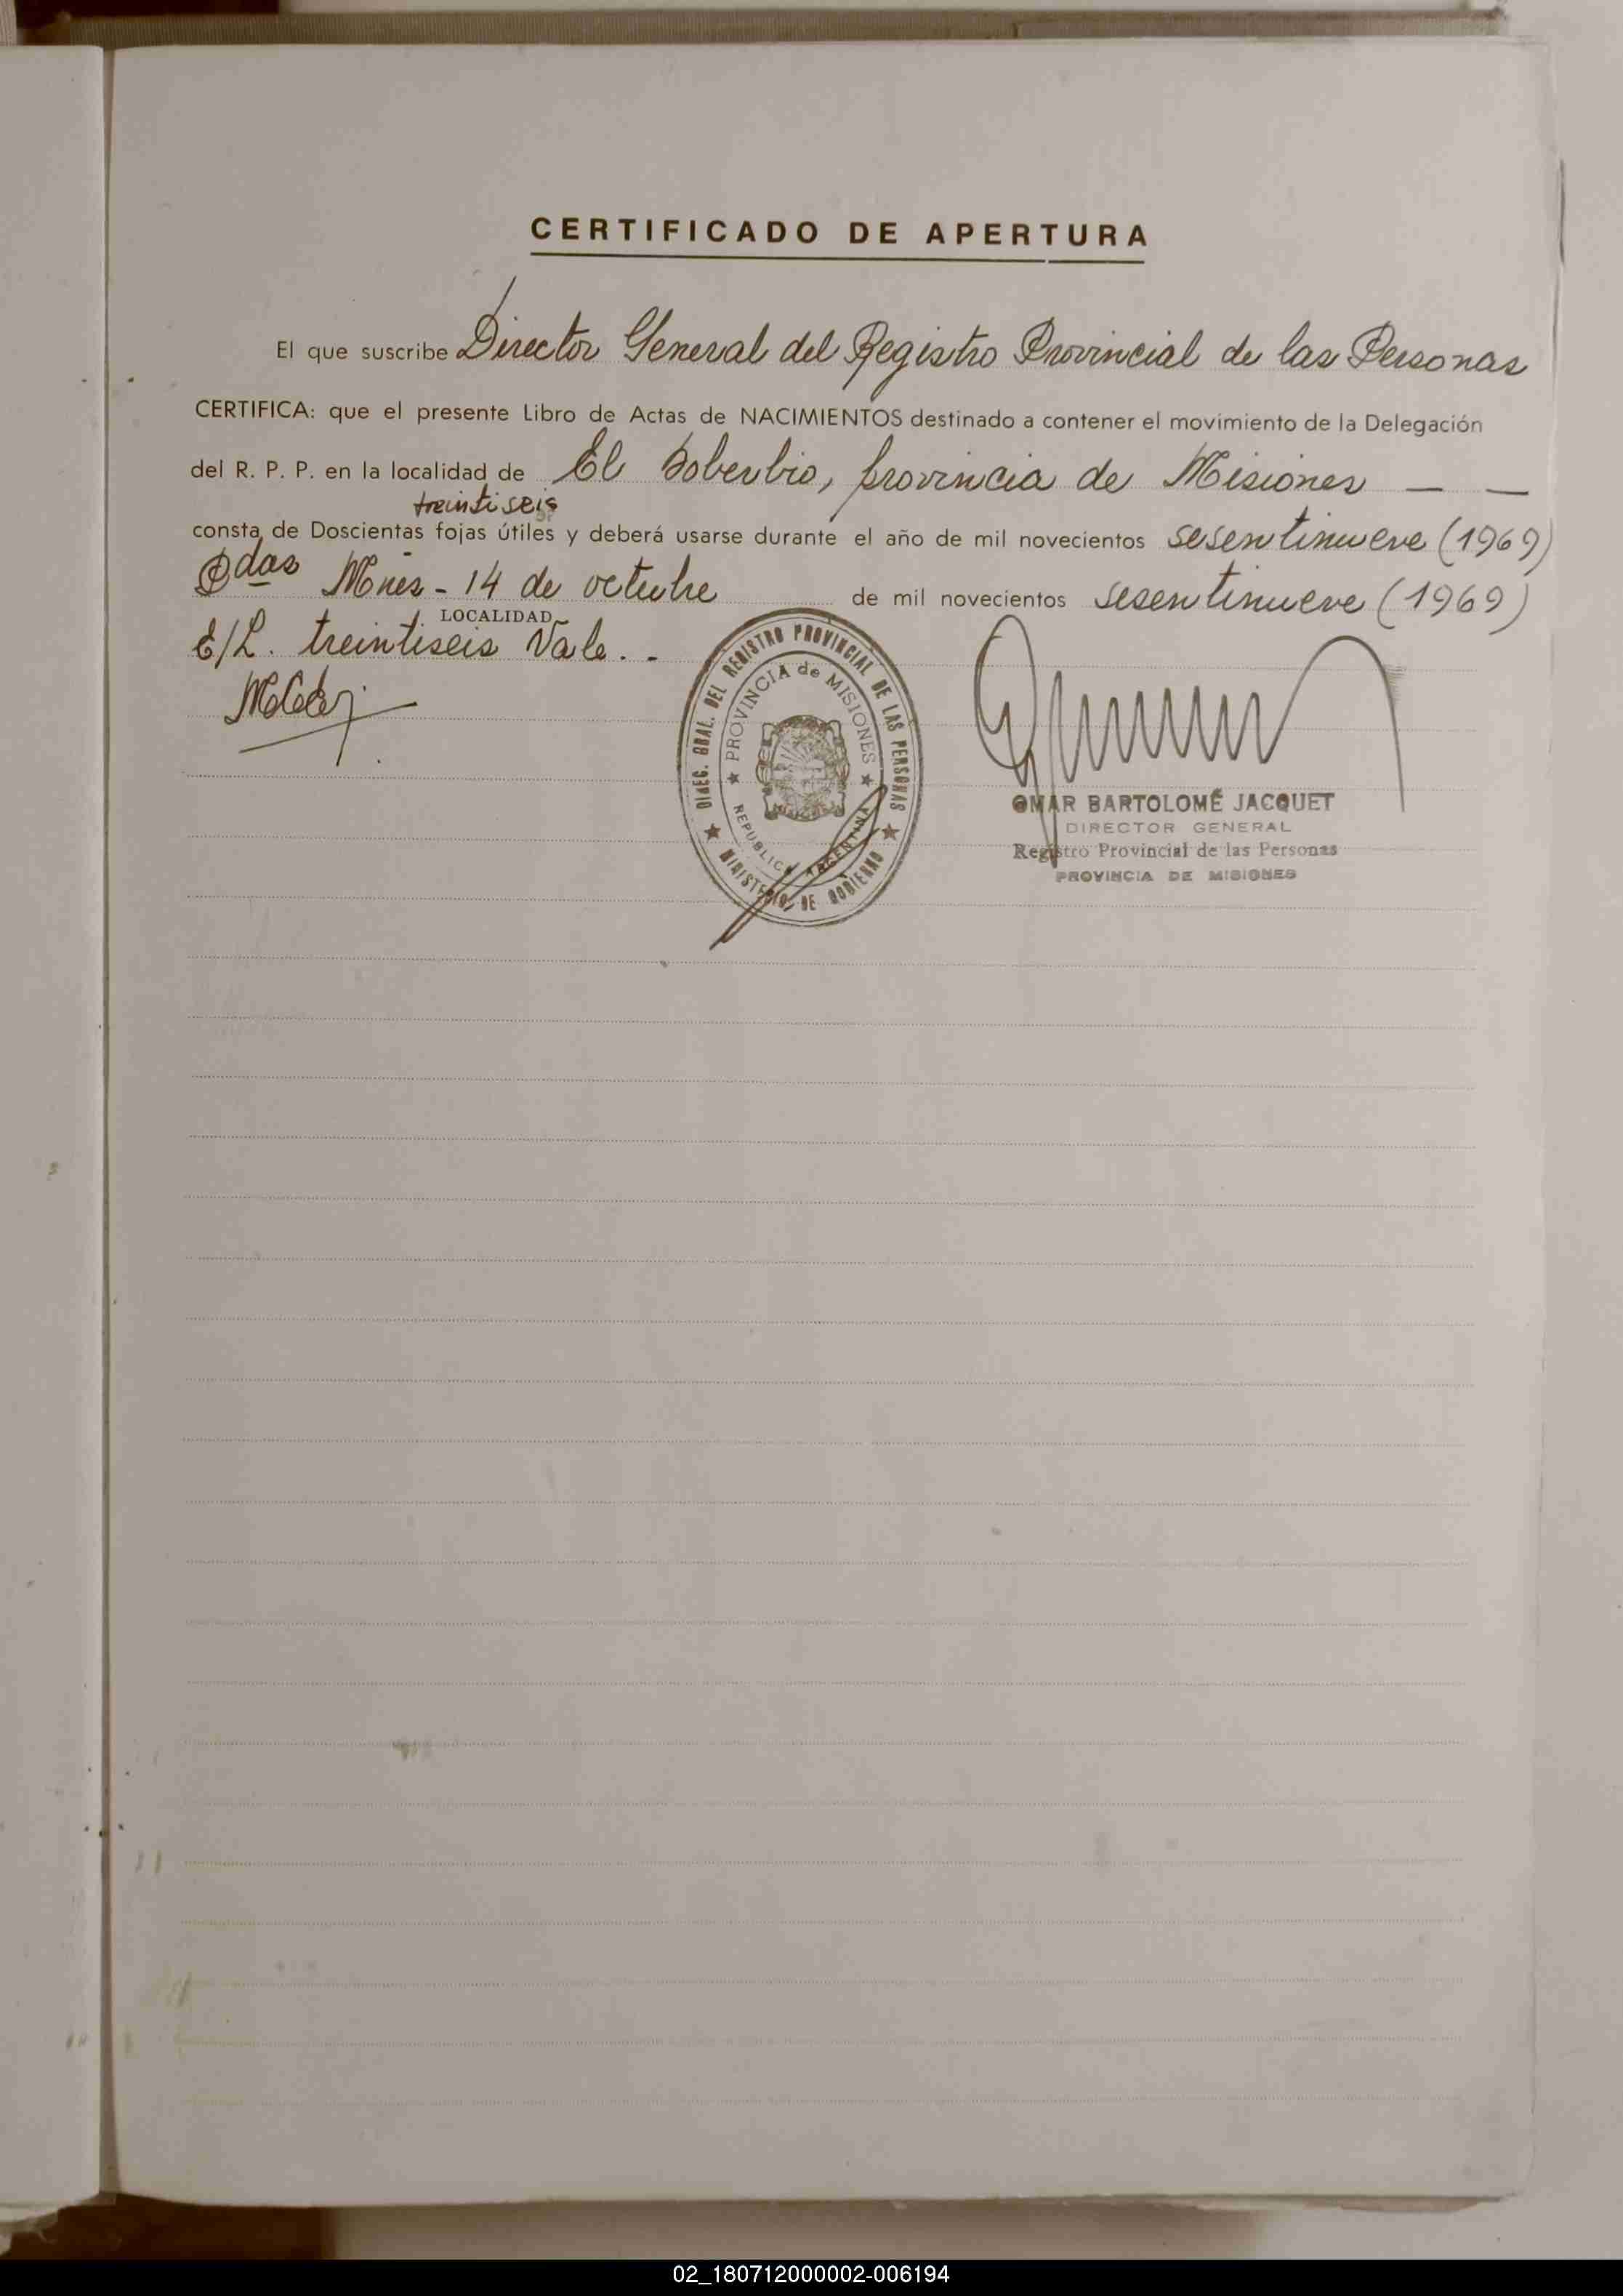 CERTIFICADO DE APERTURA
El que suscribe Director General del Registro Provincial de las Personas
CERTIFICA: que el presente Libro de Actas de NACIMIENTOS destinado a contener el movimiento de la Delegación
del R. P. P. en la localidad de El Soberbio, provincia de Misiones — —
treintiseis
consta de Doscientas fojas útiles y deberá usarse durante el año de mil novecientos sesentinueve (1969)
Pdas Mnes - 14 de octubre de mil novecientos sesentinueve (1969)
LOCALIDAD
E/L. treintiseis Vale. -
DIREC. GRAL. DEL REGISTRO PROVINCIAL DE LAS PERSONAS
★ PROVINCIA de MISIONES ★
REPUBLICA ARGENTINA
★ MINISTERIO DE GOBIERNO ★
OMAR BARTOLOMÉ JACQUET
DIRECTOR GENERAL
Registro Provincial de las Personas
PROVINCIA DE MISIONES
02_180712000002-006194